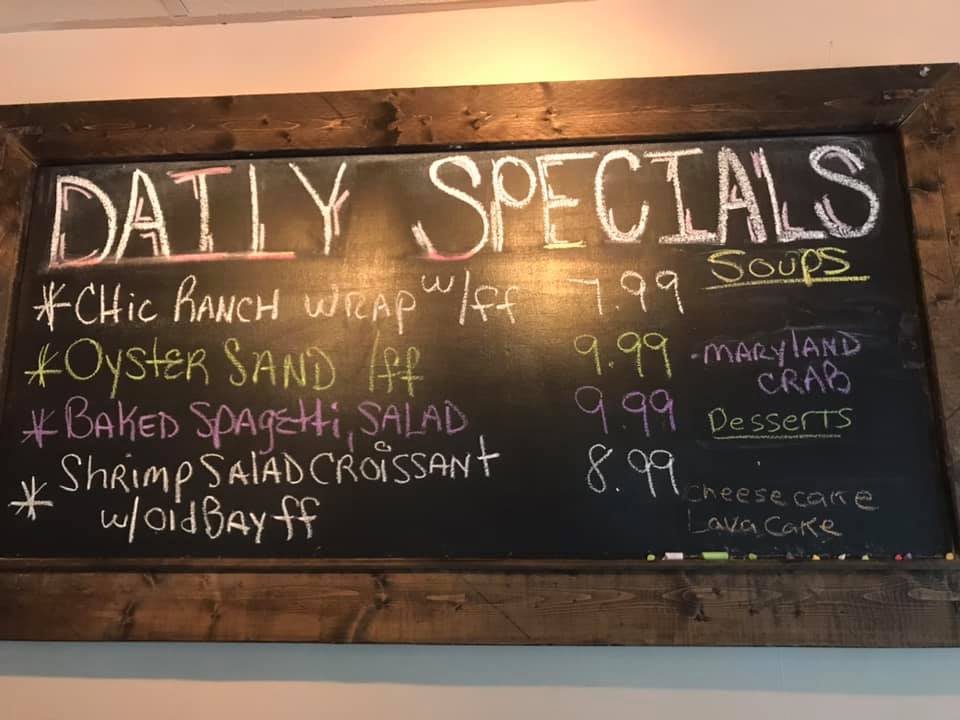 DAILY SPECIALS
* CHic RANCH WRAP w/ff 7.99
* OYSTER SAND /ff 9.99
* BAKED SPAGEttI, SALAD 9.99
* Shrimp SALAD CROISSANt 8.99
w/Old BAY ff
Soups
-MARYLAND
CRAB
Desserts
cheese cake
Lava Cake